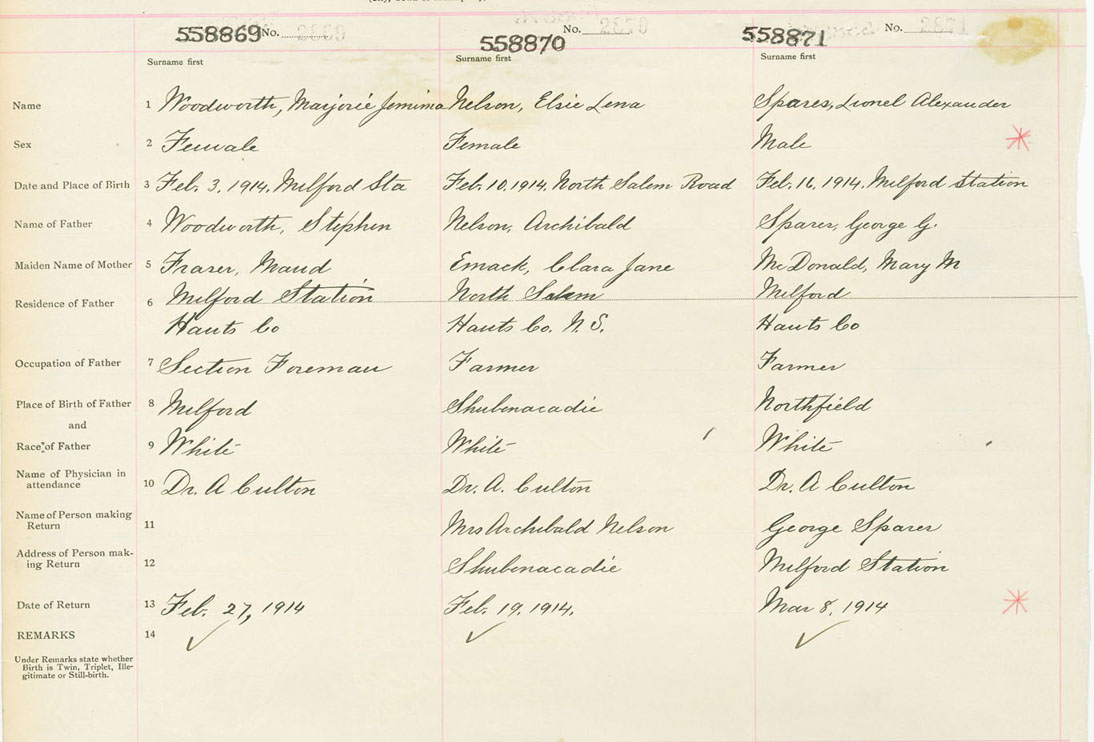 558869 No. 2869 558870 No. 2870 558871 No. 2871
Surname first Surname first Surname first
Name 1 Woodworth, Marjorie Jemima Nelson, Elsie Lena Spares, Lionel Alexander
Sex 2 Female Female Male
Date and Place of Birth 3 Feb. 3. 1914. Milford Sta Feb. 10. 1914, North Salem Road Feb. 16, 1914. Milford Station
Name of Father 4 Woodworth, Stephen Nelson, Archibald Sparer, George G.
Maiden Name of Mother 5 Fraser, Maud Emack, Clara Jane McDonald, Mary M
Residence of Father 6 Milford Station North Salem Milford
Hants Co Hants Co. N.S. Hants Co
Occupation of Father 7 Section Foreman Farmer Farmer
Place of Birth of Father 8 Milford Shubenacadie Northfield
and
Race of Father 9 White White White
Name of Physician in
attendance 10 Dr. A Culton Dr. A. Culton Dr. A Culton
Name of Person making
Return 11 Mrs Archibald Nelson George Sparer
Address of Person mak-
ing Return 12 Shubenacadie Milford Station
Date of Return 13 Feb. 27, 1914 Feb. 19, 1914. Mar 8, 1914
REMARKS 14
Under Remarks state whether
Birth is Twin, Triplet, Ille-
gitimate or Still-birth.